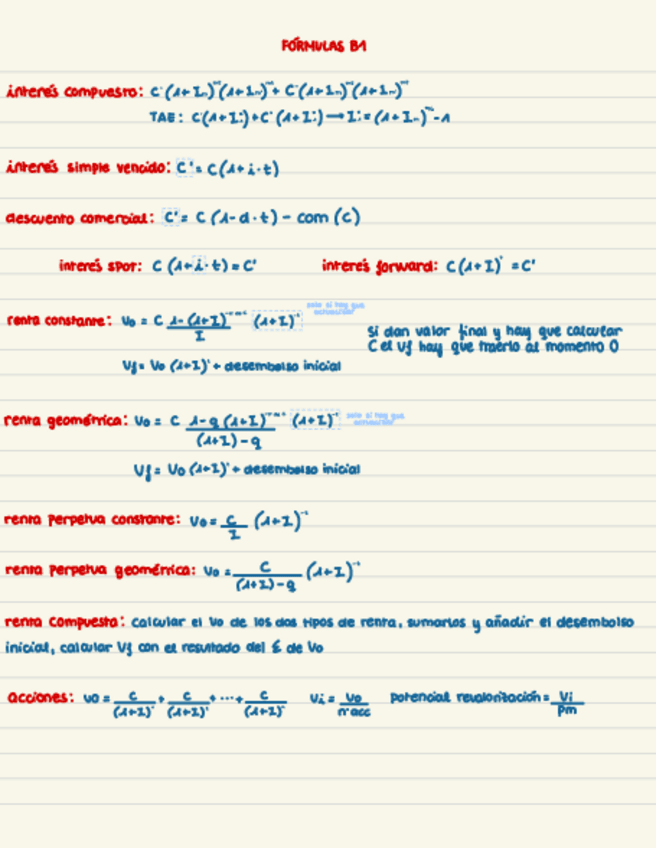 FÓRMULAS B1
interés compuesto: C·(1+Im) (1+Im) + C·(1+Im) (1+Im)
TAE: C(1+I)+C·(1+I) → I = (1+Im) -1
interés simple vencido: C' = C(1+i·t)
descuento comercial: C' = C (1-d·t) - com (C)
interés spot: C (1+i·t) = C' interés forward: C (1+I) = C'
renta constante: Vo = C 1-(1+I) / I (1+I) solo si hay que actualizar
si dan valor final y hay que calcular
C el Vf hay que traerlo al momento 0
Vf = Vo (1+I) + desembolso inicial
renta geométrica: Vo = C 1-q (1+I) / (1+I)-q (1+I) solo si hay que actualizar
Vf = Vo (1+I) + desembolso inicial
renta perpetua constante: Vo = C / I (1+I)
renta perpetua geométrica: Vo = C / (1+I)-q (1+I)
renta compuesta: calcular el Vo de los dos tipos de renta, sumarlos y añadir el desembolso
inicial, calcular Vf con el resultado del Σ de Vo
acciones: Vo = C / (1+I) + C / (1+I) + ... + C / (1+I) Vi = Vo / nºacc potencial revalorización = Vi / Pm